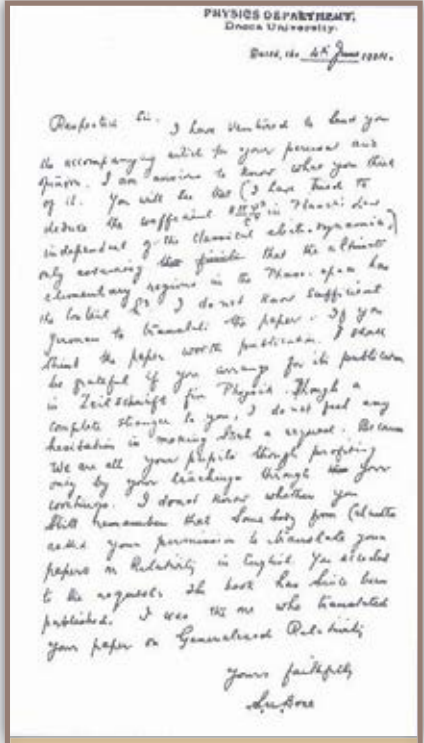 PHYSICS DEPARTMENT,
Dacca University.
Dacca, the 4th June 1924.
Respected Sir. I have ventured to send you
the accompanying article for your perusal and
opinion. I am anxious to know what you think
of it. You will see that I have tried to
deduce the coefficient 8πν²/c³ in Planck's law
independent of the classical electrodynamics,
only assuming that the ultimate
elementary regions in the Phase-space has
the content h³. I do not know sufficient
German to translate the paper. If you
think the paper worth publication, I shall
be grateful if you arrange for its publication
in Zeitschrift für Physik. Though a
complete stranger to you, I do not feel any
hesitation in making such a request. Because
we are all your pupils though profiting
only by your teachings through your
writings. I do not know whether you
still remember that somebody from Calcutta
asked your permission to translate your
papers on Relativity in English. You acceded
to the request. The book has since been
published. I was the one who translated
your paper on Generalised Relativity
Yours faithfully
S.N. Bose